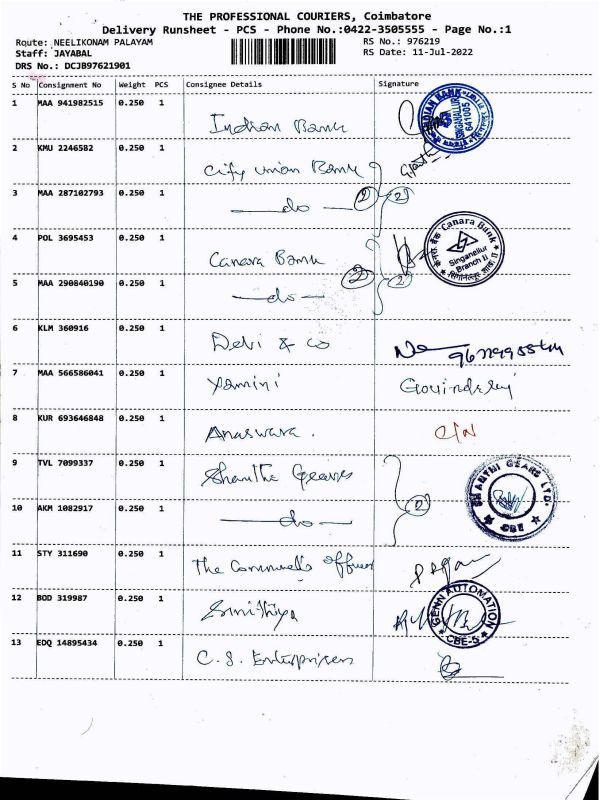 THE PROFESSIONAL COURIERS, Coimbatore
Delivery Runsheet - PCS - Phone No.:0422-3505555 - Page No.:1
Route: NEELIKONAM PALAYAM RS No.: 976219
Staff: JAYABAL RS Date: 11-Jul-2022
DRS No.: DCJB97621901
S No Consignment No Weight PCS Consignee Details Signature
1 MAA 941982515 0.250 1
Indian Bank
INDIAN BANK SINGANALLUR 641005
2 KMU 2246582 0.250 1
City union Bank
3 MAA 287102793 0.250 1
do 2 2
4 POL 3695453 0.250 1
Canara Bank
Canara Bank Singanallur Branch II
5 MAA 290840190 0.250 1
do 2 2
6 KLM 360916 0.250 1
Devi & co
7 MAA 566586041 0.250 1
Yamini
8 KUR 693646848 0.250 1
Anaswara. C/N
9 TVL 7099337 0.250 1
Shantha Gears
SHANTHI GEARS LTD. CBE
10 AKM 1082917 0.250 1
do 2
11 STY 311690 0.250 1
The
12 BOD 319987 0.250 1
GENN AUTOMATION CBE-5
13 EDQ 14895434 0.250 1
C.S. Enterprises